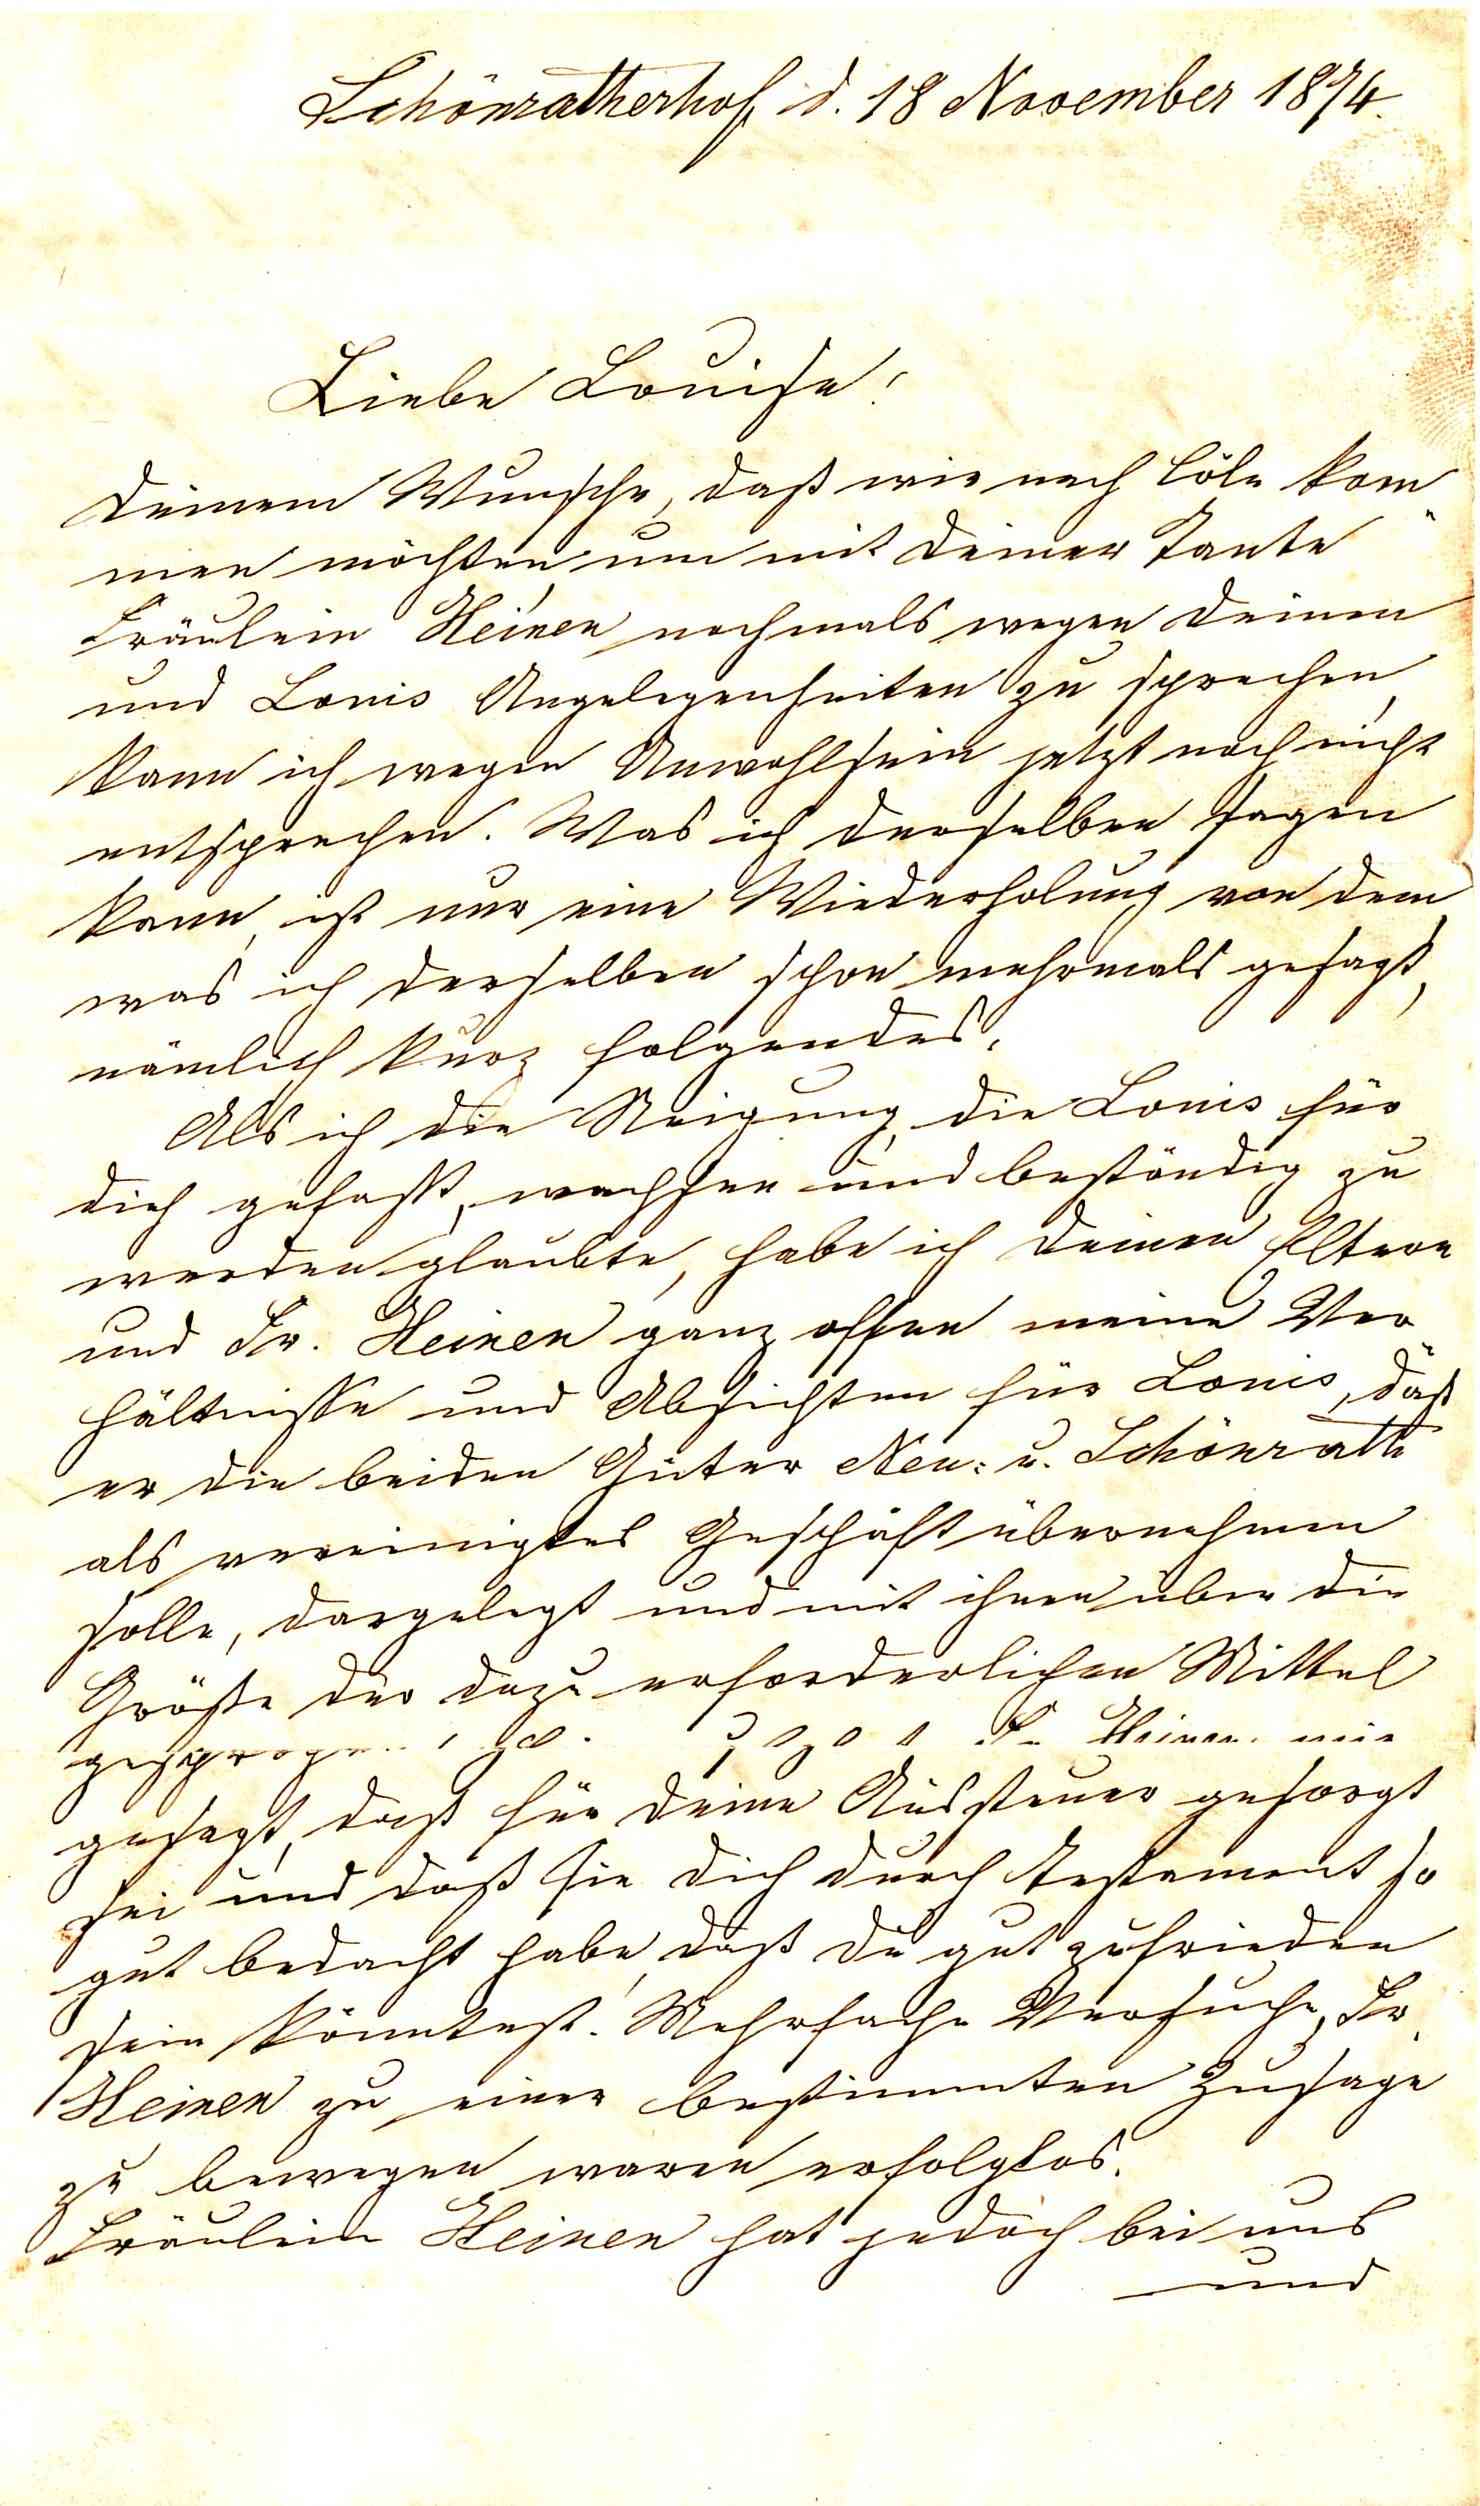 Schönratherhof, d. 18 November 1874.
Liebe Louise!
Deinem Wunsche, daß wir nach Cöln kom-
men möchten, um mit Deiner Tante
Fräulein Heinen nochmals wegen Deinen
und Louis Angelegenheiten zu sprechen,
kann ich wegen Unwohlsein jetzt noch nicht
entsprechen. Was ich derselben sagen
kann, ist nur eine Wiederholung von dem
was ich derselben schon mehrmals gesagt,
nämlich kurz folgendes.
Als ich die Neigung, die Louis für
dich gefaßt, wachsen und beständig zu
werden glaubte, habe ich Deinen Eltern
und Fr. Heinen ganz offen meine Ver-
hältnisse und Absichten für Louis, daß
er die beiden Güter Neu- u. Schönrath
als vereinigtes Geschäft übernehmen
solle, dargelegt und mit ihnen über die
Größe der dazu erforderlichen Mittel
Fr. Heinen mir
gesagt, daß für Deine Aussteuer gesorgt
sei und daß sie Dich durch Testament so
gut bedacht habe, daß Du gut zufrieden
sein könntest. Mehrfache Versuche, Fr.
Heinen zu einer bestimmten Zusage
zu bewegen waren erfolglos.
Fräulein Heinen hat jedoch bei uns
und